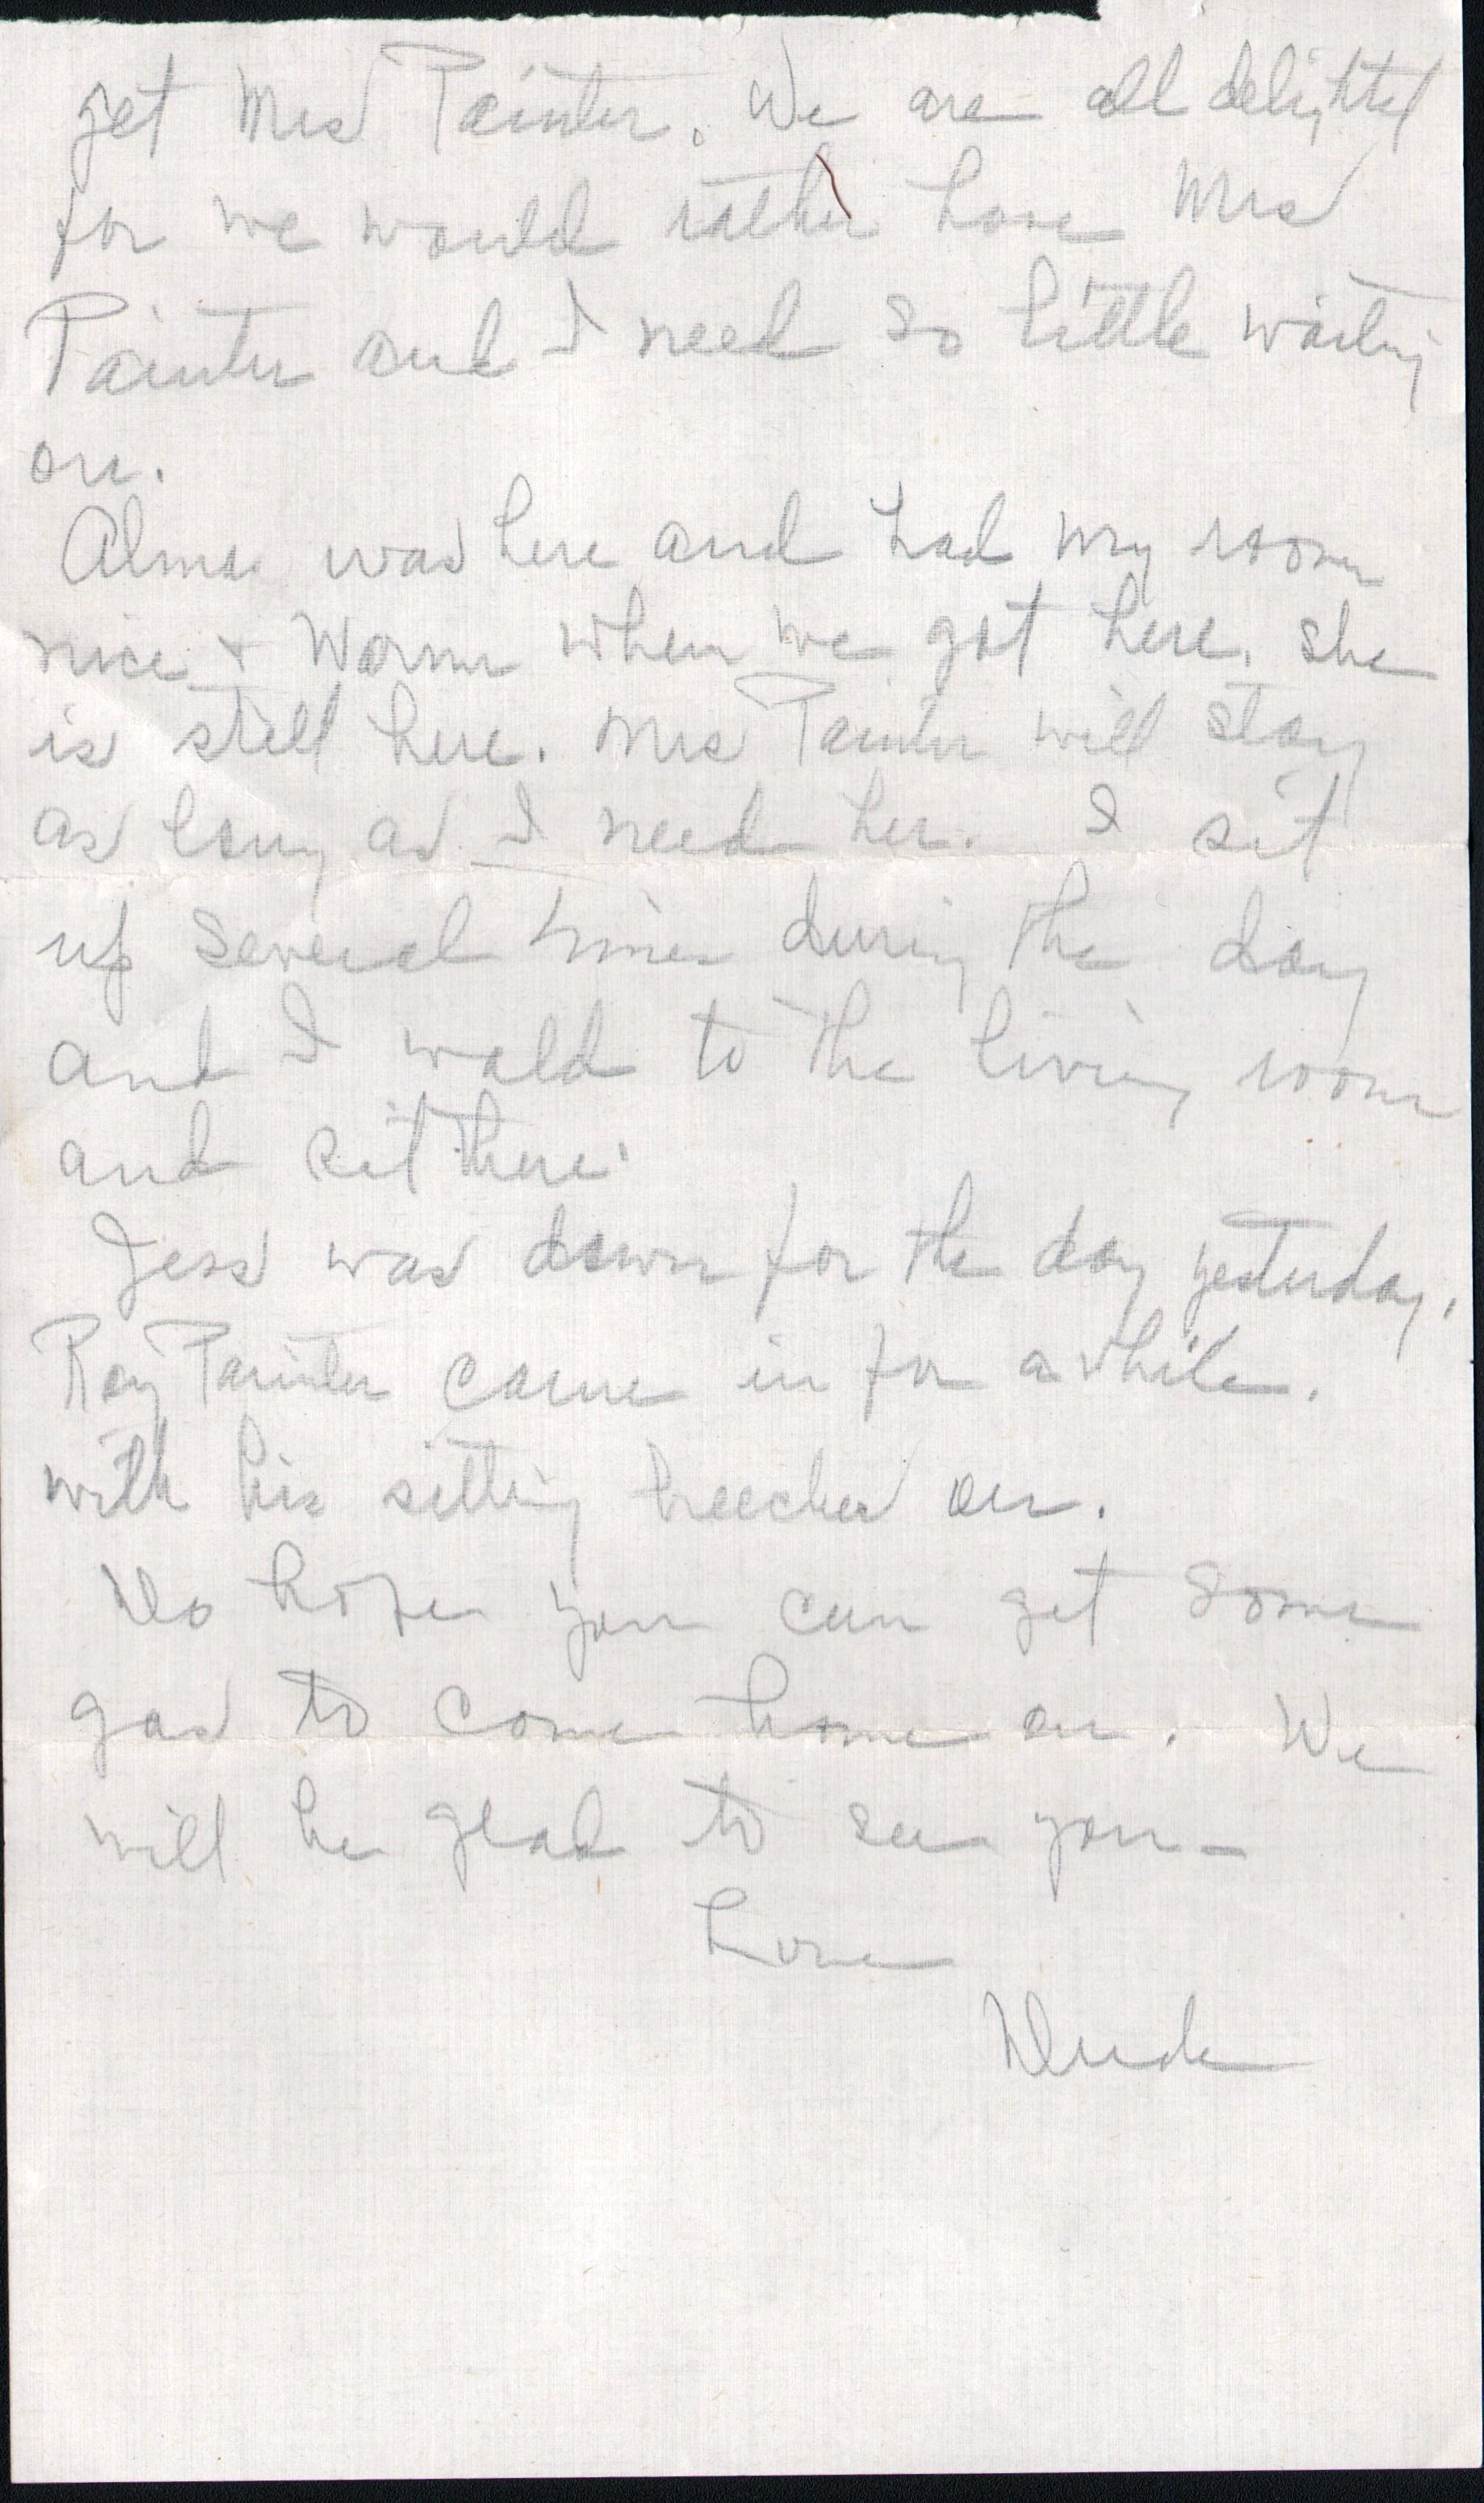 get Mrs Painter. We are all delighted
for we would rather have Mrs
Painter and I need so little waiting
on.
Alma was here and had my room
nice + warm when we got here. She
is still here. Mrs Painter will stay
as long as I need her. I sit
up several times during the day
and I walk to the living room
and sit there.
Jess was down for the day yesterday.
Roy Painter came in for a while.
with his sitting breeches on.
Do hope you can get some
gas to come home on. We
will be glad to see you -
Love
Dude